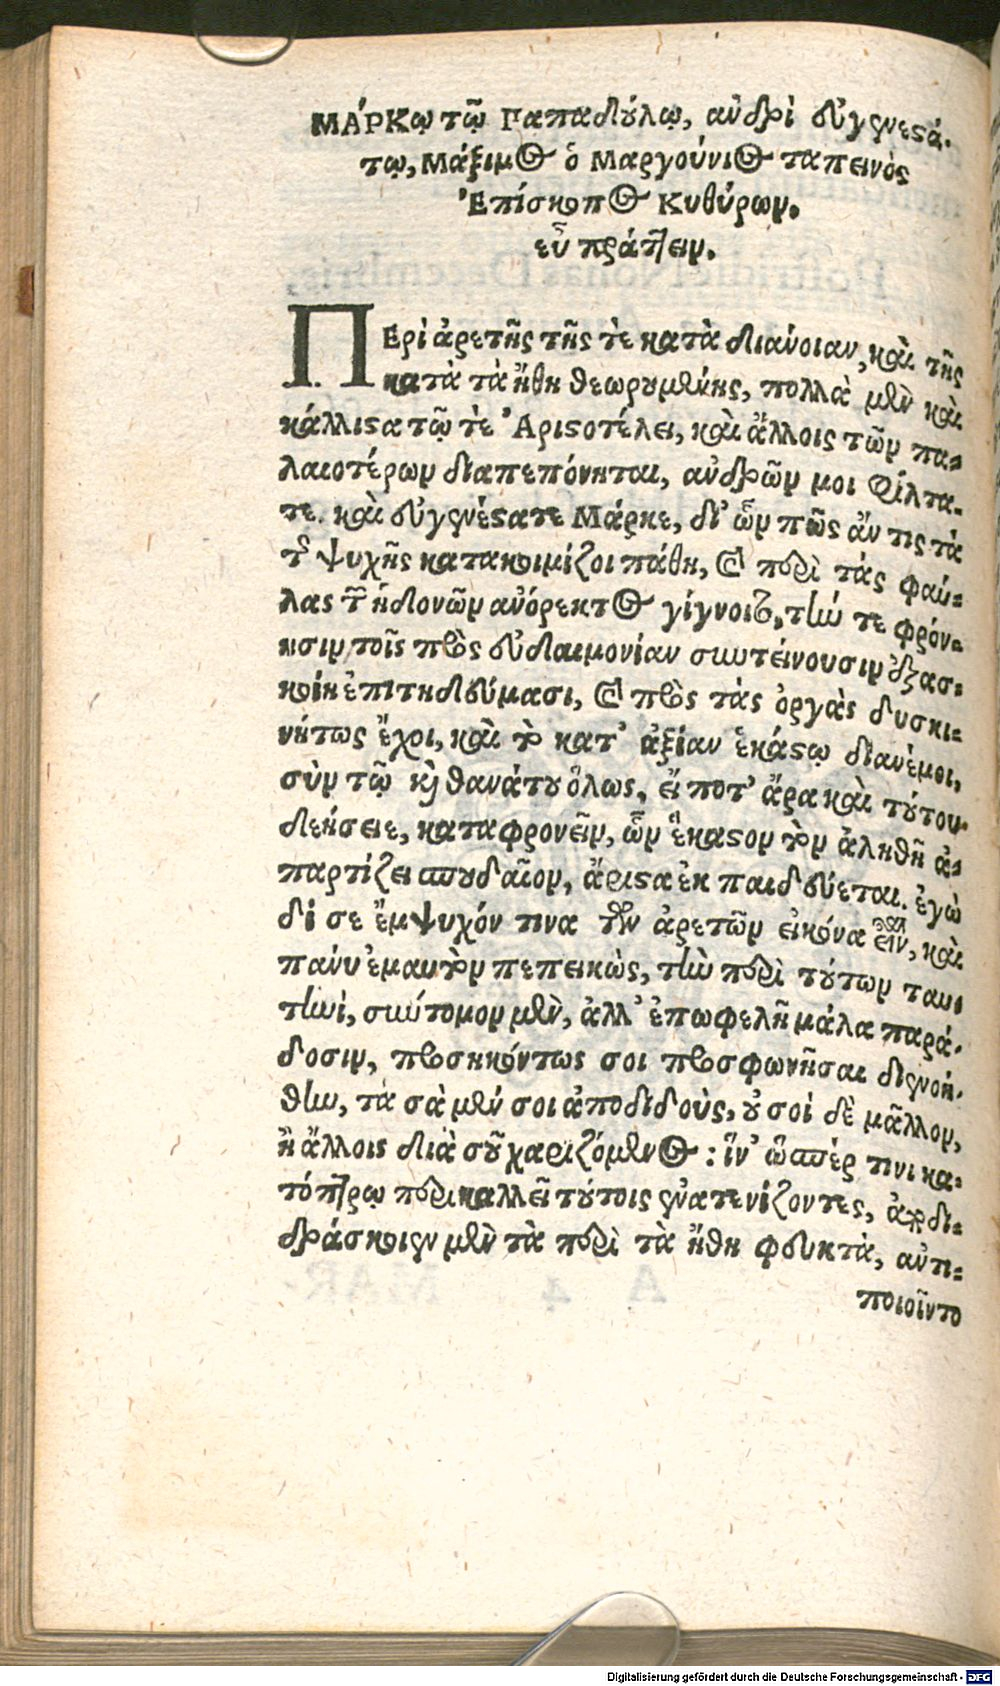 ΜΑΡΚῳ τῷ Παπαδούλῳ, ἀνδρὶ εὐγενεστά-
τῳ, Μάξιμος ὁ Μαργούνιος ταπεινὸς
Ἐπίσκοπος Κυθύρων.
εὖ πράττειν.
ΠΕρὶ ἀρετῆς τῆς τε κατὰ διάνοιαν, καὶ τῆς
κατὰ τὰ ἤθη θεωρουμένης, πολλὰ μὲν καὶ
κάλλιστα τῷ τε Ἀριστοτέλει, καὶ ἄλλοις τῶν πα-
λαιοτέρων διαπεπόνηται, ἀνδρῶν μοι φίλτα-
τε καὶ εὐγενέστατε Μάρκε, δι' ὧν πῶς ἄν τις τὰ
τῆς ψυχῆς κατακοιμίζοι πάθη, καὶ περὶ τὰς φαύ-
λας τῶν ἡδονῶν ἀνόρεκτος γίγνοιτο, τήν τε φρόν-
ησιν τοῖς πρὸς εὐδαιμονίαν συντείνουσιν ἐξασ-
κοίη ἐπιτηδεύμασι, καὶ πρὸς τὰς ὀργὰς δυσκι-
νήτως ἔχοι, καὶ τὸ κατ' ἀξίαν ἑκάστῳ διανέμοι,
σὺν τῷ καὶ θανάτου ὅλως, εἴ ποτ' ἄρα καὶ τούτου
δεήσειε, καταφρονεῖν, ὧν ἕκαστον τὸν ἀληθῆ ἀ-
παρτίζει σπουδαῖον, ἄριστα ἐκπαιδεύεται. ἐγὼ
δέ σε ἔμψυχόν τινα τῶν ἀρετῶν εἰκόνα εἶναι, καὶ
πάνυ ἐμαυτὸν πεπεικὼς, τὴν περὶ τούτων ταυ-
τηνὶ, σύντομον μὲν, ἀλλ' ἐπωφελῆ μάλα παρά-
δοσιν, προσηκόντως σοι προσφωνῆσαι διενοή-
θην, τὰ σὰ μέν σοι ἀποδιδοὺς, οὐ σοὶ δὲ μᾶλλον,
ἢ ἄλλοις διὰ σοῦ χαριζόμενος : ἵν' ὥσπερ τινι κα-
τόπτρῳ περικαλλεῖ τούτοις ἐνατενίζοντες, ἀποδι-
δράσκοιεν μὲν τὰ περὶ τὰ ἤθη φευκτὰ, ἀντι-
ποιοῖντο
Digitalisierung gefördert durch die Deutsche Forschungsgemeinschaft - DFG